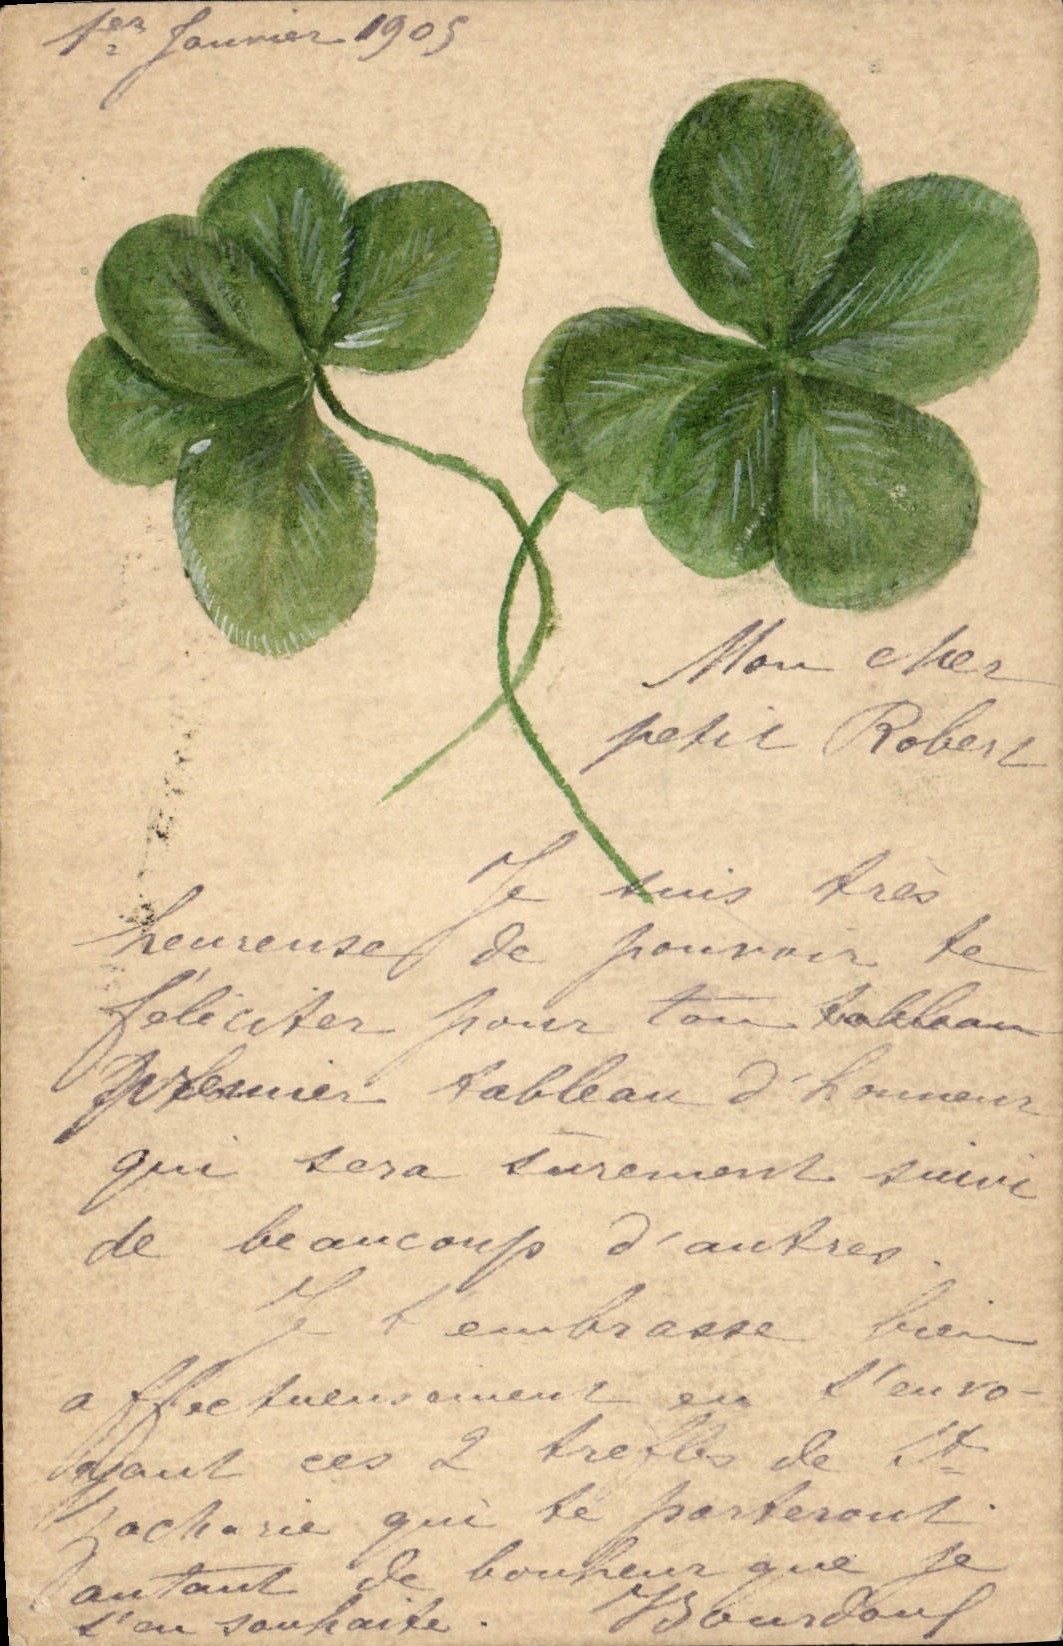 1er Janvier 1905
Mon cher
petit Robert
Je suis très
heureuse de pouvoir te
féliciter pour ton tableau
premier tableau d'honneur
qui sera sûrement suivi
de beaucoup d'autres.
Je t'embrasse bien
affectueusement en t'envo-
yant ces 2 trefles de St
Zacharie qui te porteront
autant de bonheur que je
t'en souhaite.